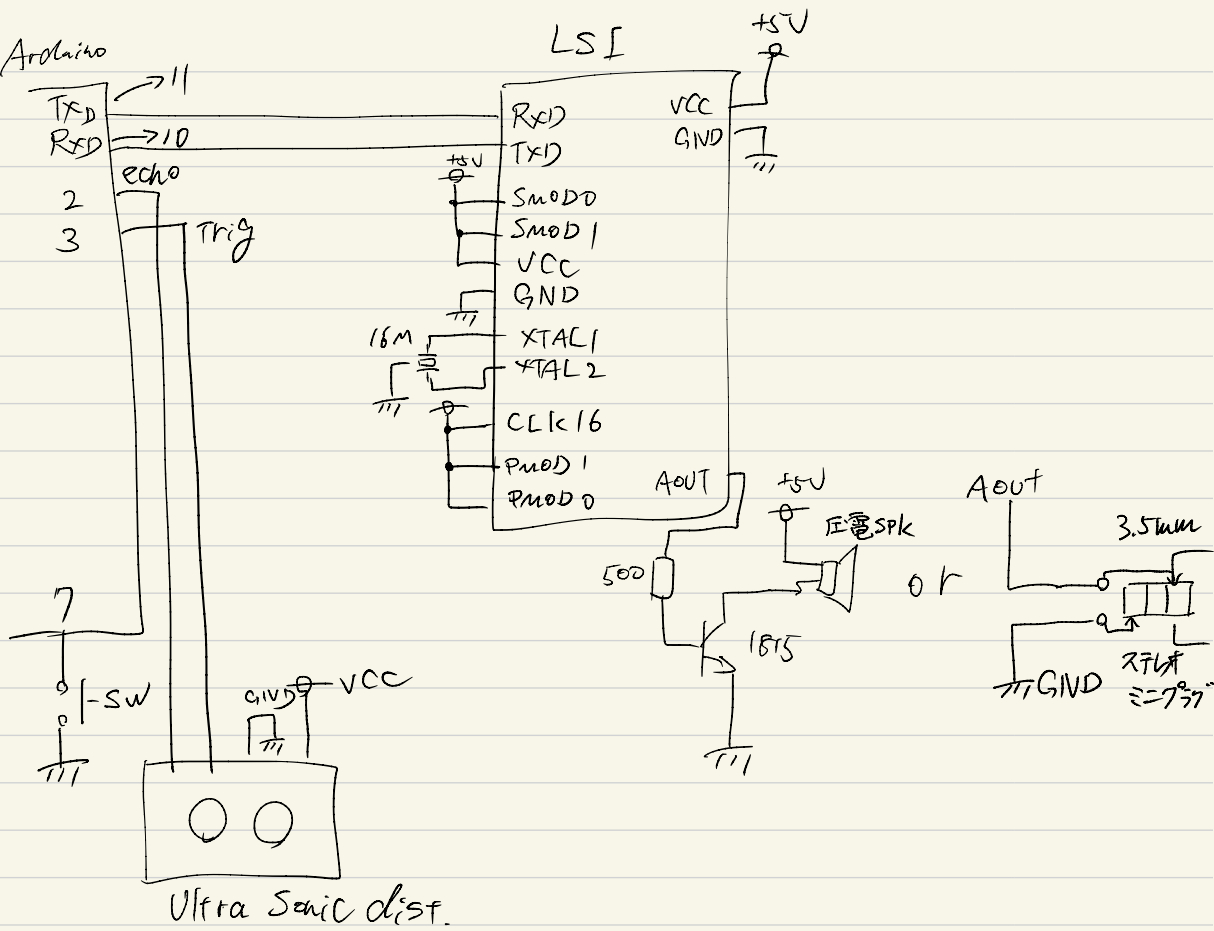 Arduino
→11
TXD
RXD
→10
echo
2
3
Trig
7
SW
GND
VCC
Ultra Sonic dist.
LSI
+5V
RXD
TXD
VCC
GND
+5V
SMOD0
SMOD1
VCC
GND
16M
XTAL1
XTAL2
CLK16
PMOD1
PMOD0
AOUT
500
+5V
圧電SPK
1815
or
AOUT
3.5mm
GND
ステレオ
ミニプラグ